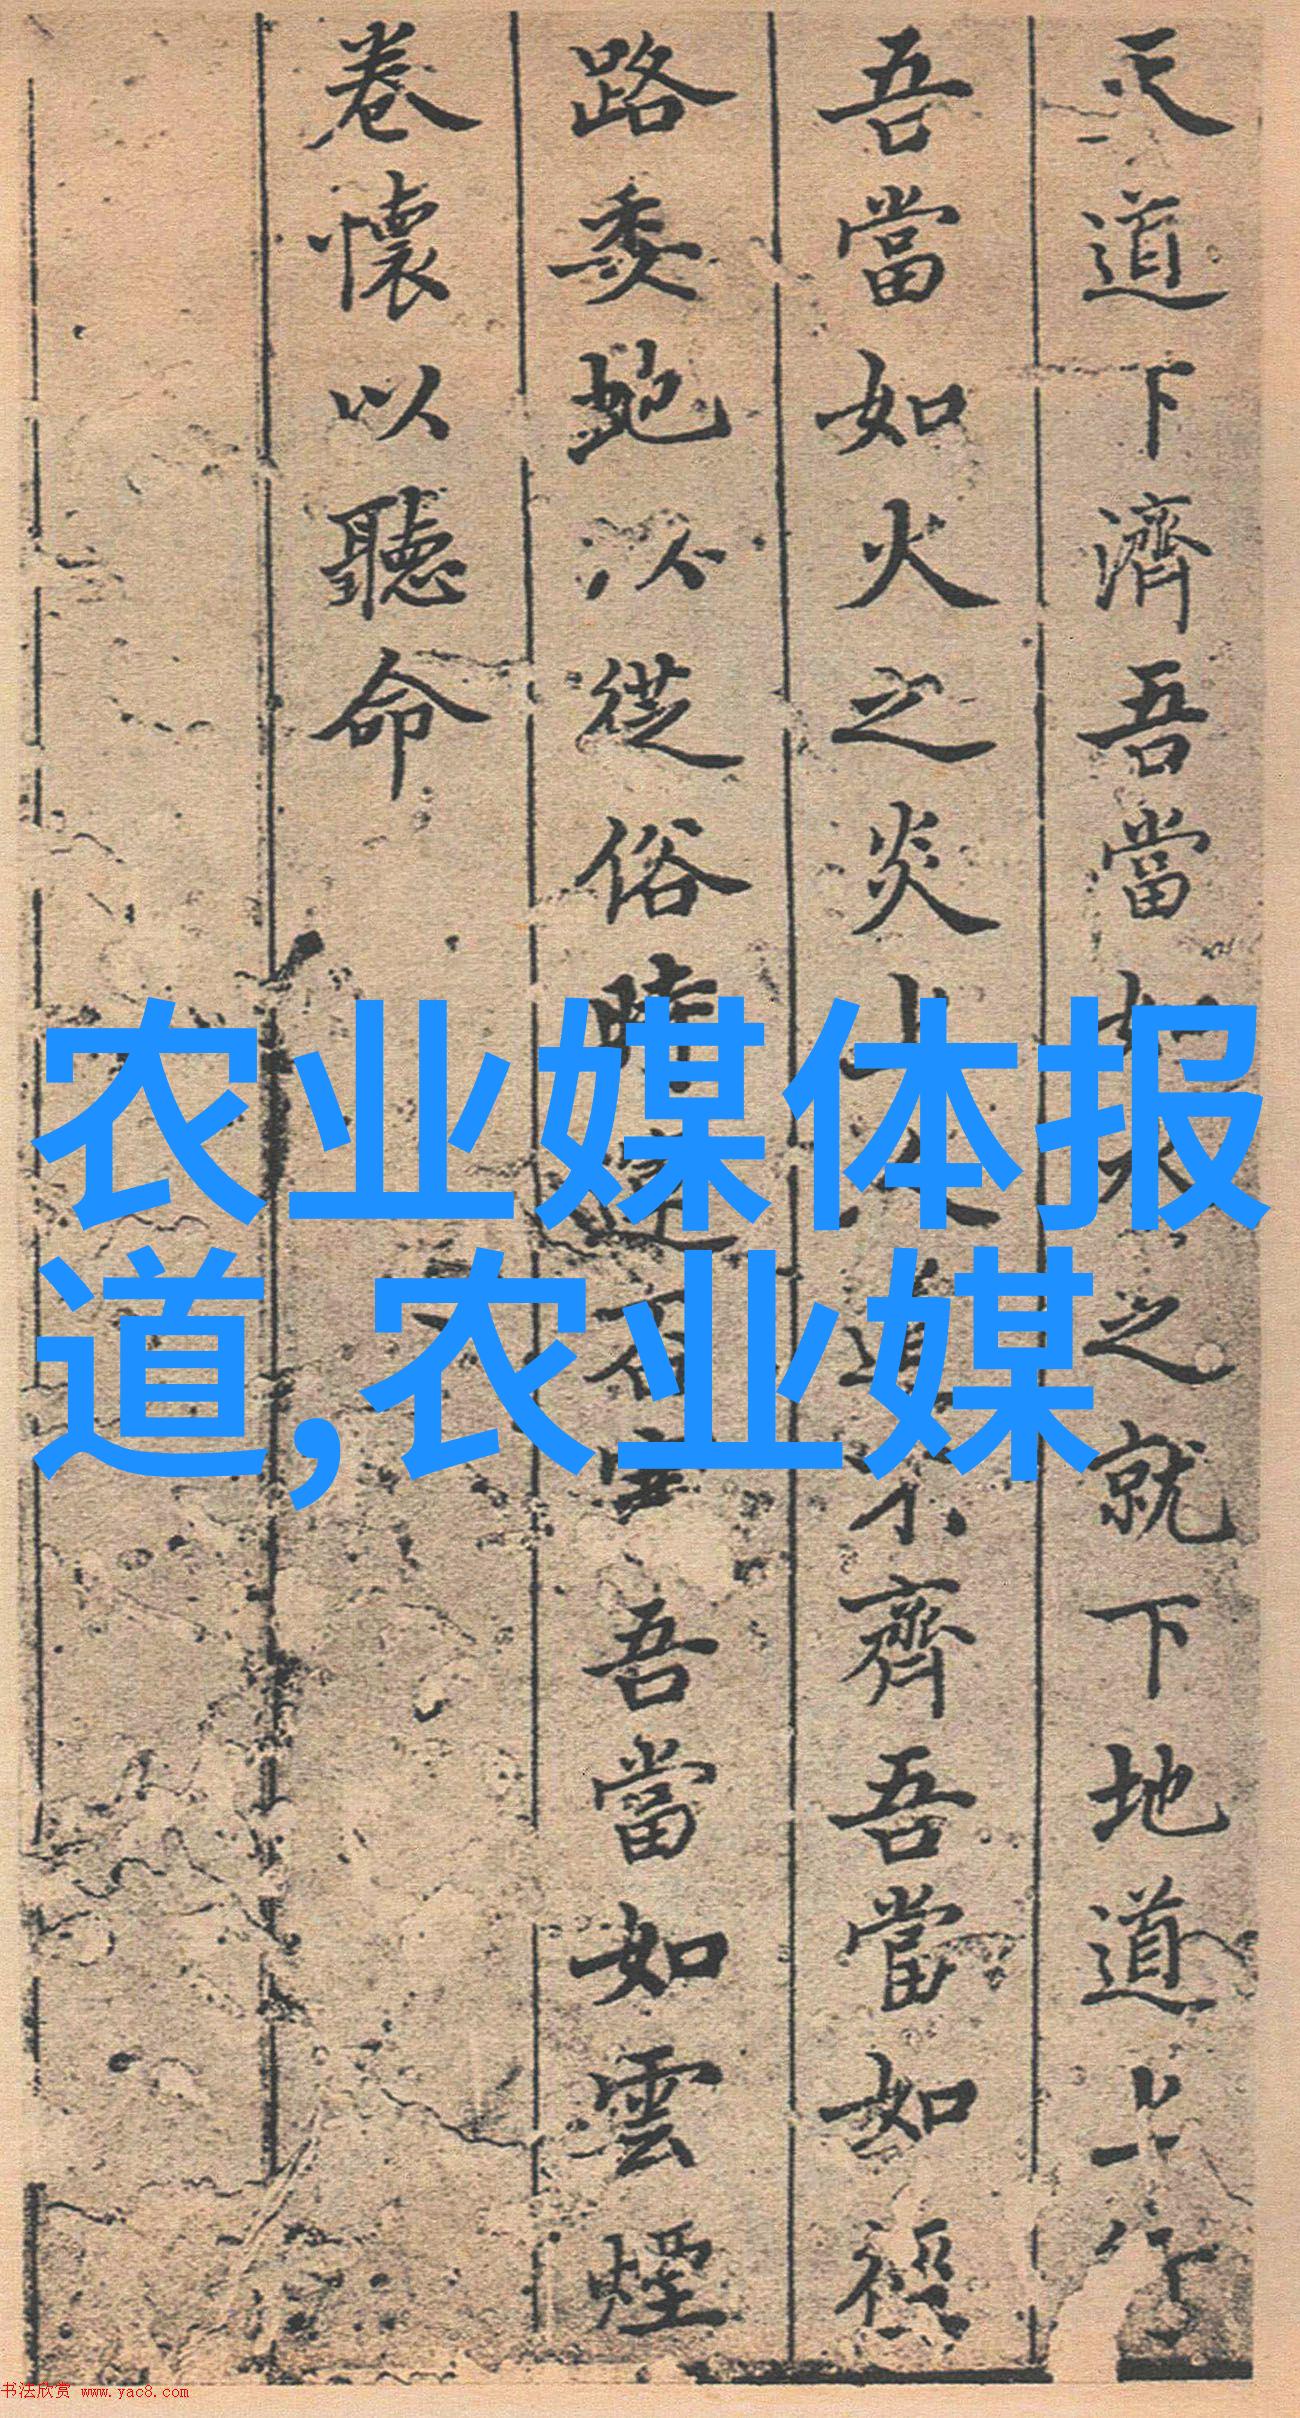 天道下濟吾當如水之就下地道上行
吾當如火之炎上人道不齊吾當如經
路委蛇以從俗時逆者安吾當如雲煙
卷懷以聽命
农业媒体报
道,农业媒
书法欣赏 www.yac8.com